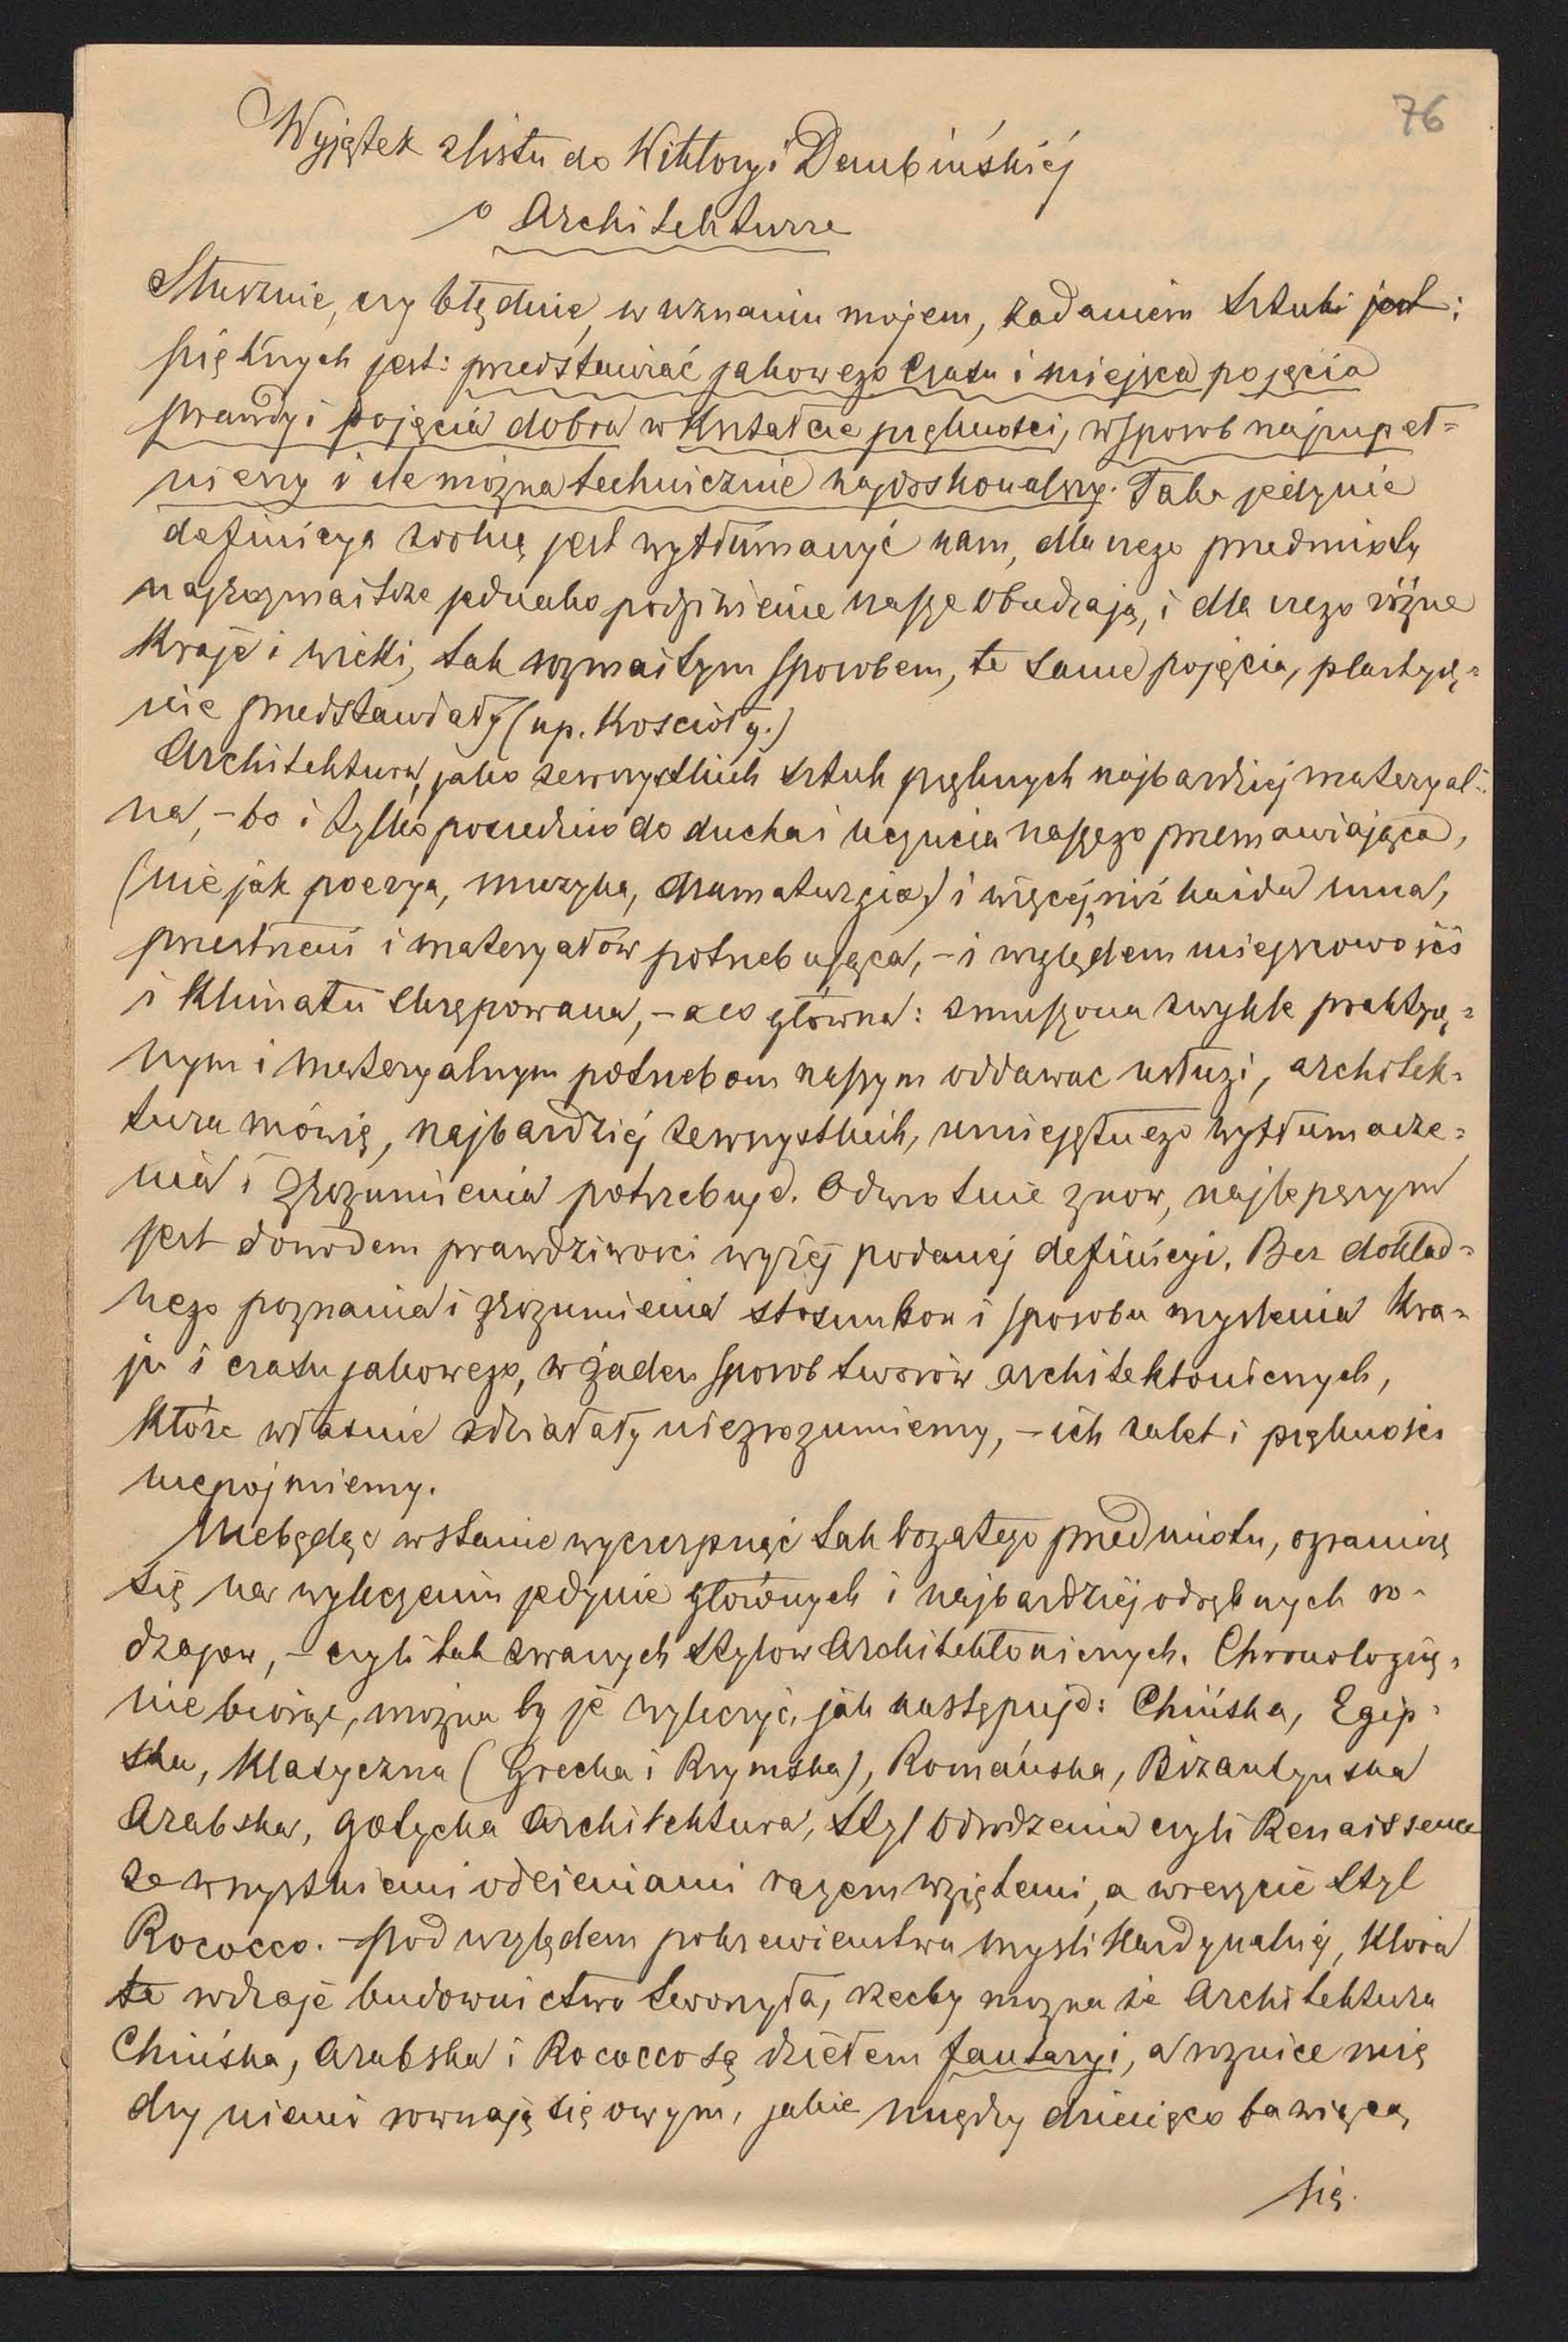 76
Wyjątek z listu do Wiktoryi Dembińskiéj
o Architekturze
Słusznie, czy błędnie, w uznaniu mojem, zadaniem sztuki jest:
pięknych jest: przedstawiać jakowego czasu i miejsca pojęcia
prawdy i pojęcia dobra w kształcie piękności, w sposob najzupeł=
niejszy i ile można technicznie najdoskonalszy. Taka jedynie
definicya zdolną jest wytłumaczyć nam, dla czego przedmioty
najrozmaitsze jednako podziwienie nasze obudzają, i dla czego różne
kraje i wieki, tak rozmaitym sposobem, te same pojęcia, plastycz=
nie przedstawiały (np. Kościoły.)
Architektura, jako ze wszystkich sztuk pięknych najbardziej materyal=
na, – bo i tylko pośrednio do ducha i uczucia naszego przemawiająca,
(nie jak poezya, muzyka, dramaturgia) i więcéj niż każda inna,
przestrzeni i materyałów potrzebująca, – i względem miejscowości
i klimatu skrępowana, – a co główna: zmuszona zwykle praktycz=
nym i materyalnym potrzebom naszym oddawac usługi, architek=
tura mówię, najbardziéj ze wszystkich, umiejętnego wytłumacze=
nia i zrozumienia potrzebuje. Odwrotnie znow, najlepszym
jest dowodem prawdziwosci wyżéj podanéj definicyi. Bez dokład=
nego poznania i zrozumienia stosunkow i sposobu myslenia kra=
ju i czasu jakowego, w żaden sposob tworów architektonicznych,
które własnie zdziałały niezrozumiemy, – ich zalet i piękności
niepojmiemy.
Niebędąc w stanie wyczerpnąć tak bogatego przedmiotu, ograniczę
się na wyliczeniu jedynie głównych i najbardziéj odrębnych ro=
dzajow, – czyli tak zwanych stylow Architektonicznych. Chronologicz=
nie biorąc, można by je wyliczyć, jak następuje: Chińska, Egip=
ska, Klasyczna (Grecka i Rzymska), Romańska, Bizantyńska
Arabska, Gotycka Architektura, styl Odrodzenia czyli Renaissence
ze wszystkiemi odcieniami razem wziętemi, a wreszcie styl
Rococco. – Pod względem pokrewieństwa mysli kardynalnéj, która
te rodzaje budownictwa tworzyła, rzecby mozna że Architektura
Chińska, Arabska i Rococco są dziełem fantazyi, a roznice mię
dzy niemi rownają się owym, jakie między dziecięco bawiącą
się.